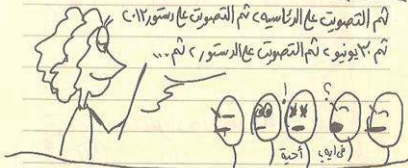 ثم التصويت على الرئاسة، ثم التصويت على دستور ٢٠١٢
ثم ٣٠ يونيو، ثم التصويت على الدستور، ثم...
! ؟
أحية